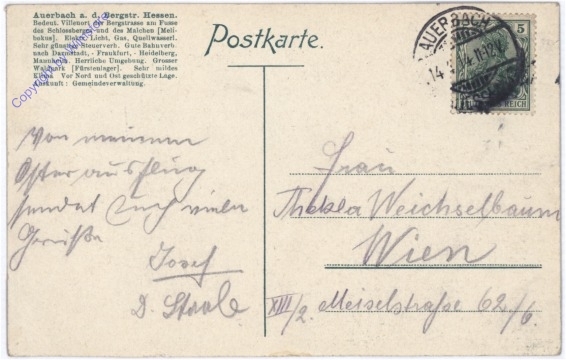 Auerbach a. d. Bergstr. Hessen.
Bedeut. Villenort der Bergstrasse am Fusse
des Schlossberges und des Malchen [Meli-
bokus]. Elektr. Licht, Gas, Quellwasserl.
Sehr günstige Steuerverh. Gute Bahnverb.
nach Darmstadt, - Frankfurt, - Heidelberg,
Mannheim. Herrliche Umgebung. Grosser
Waldpark [Fürstenlager]. Sehr mildes
Klima. Vor Nord und Ost geschützte Lage.
Auskunft: Gemeindeverwaltung.
Postkarte.
AUERBACH
5
REICH
Von meinem
Osterausflug
sendet Euch viele
Grüße
Josef
Frau
Thekla Weichselbaum
Wien
XIII/2. Meiselstraße 62/6.